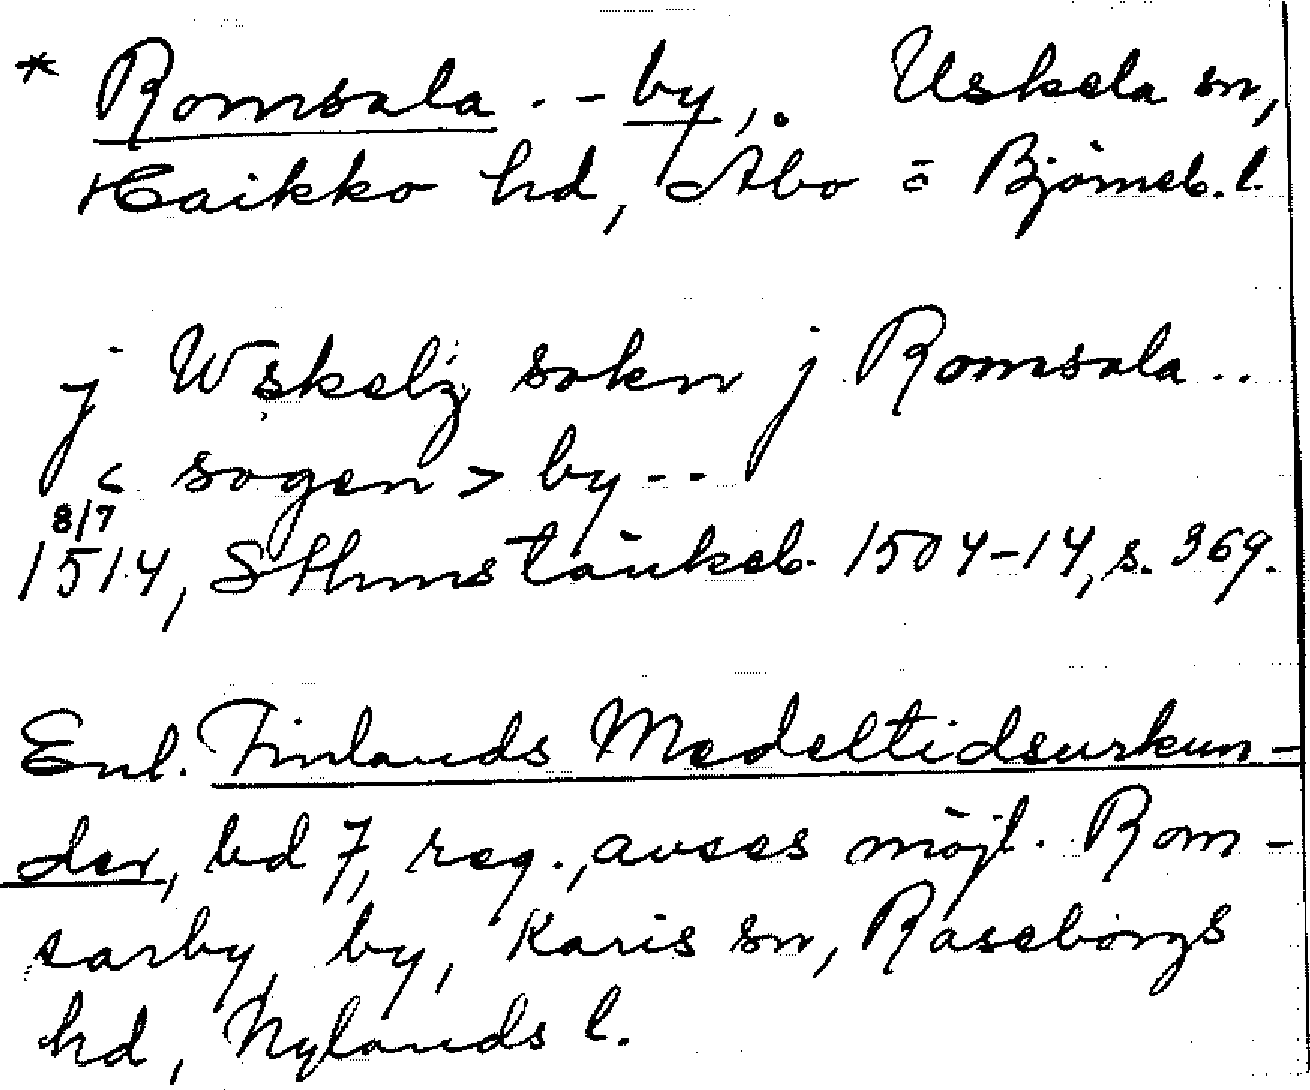 * Romsala . - by, . Uskela sn,
Haikko hd, Åbo o Björneb. l.
j Wskelz sokn j Romsala . .
< sogen > by - -
8/7
1514, Sthms tänkeb. 1504-14, s. 369.
Enl. Finlands Medeltidsurkun-
der, bd 7, reg., avses möjl. Rom-
sarby, by, Karis sn, Raseborgs
hd, Nylands l.